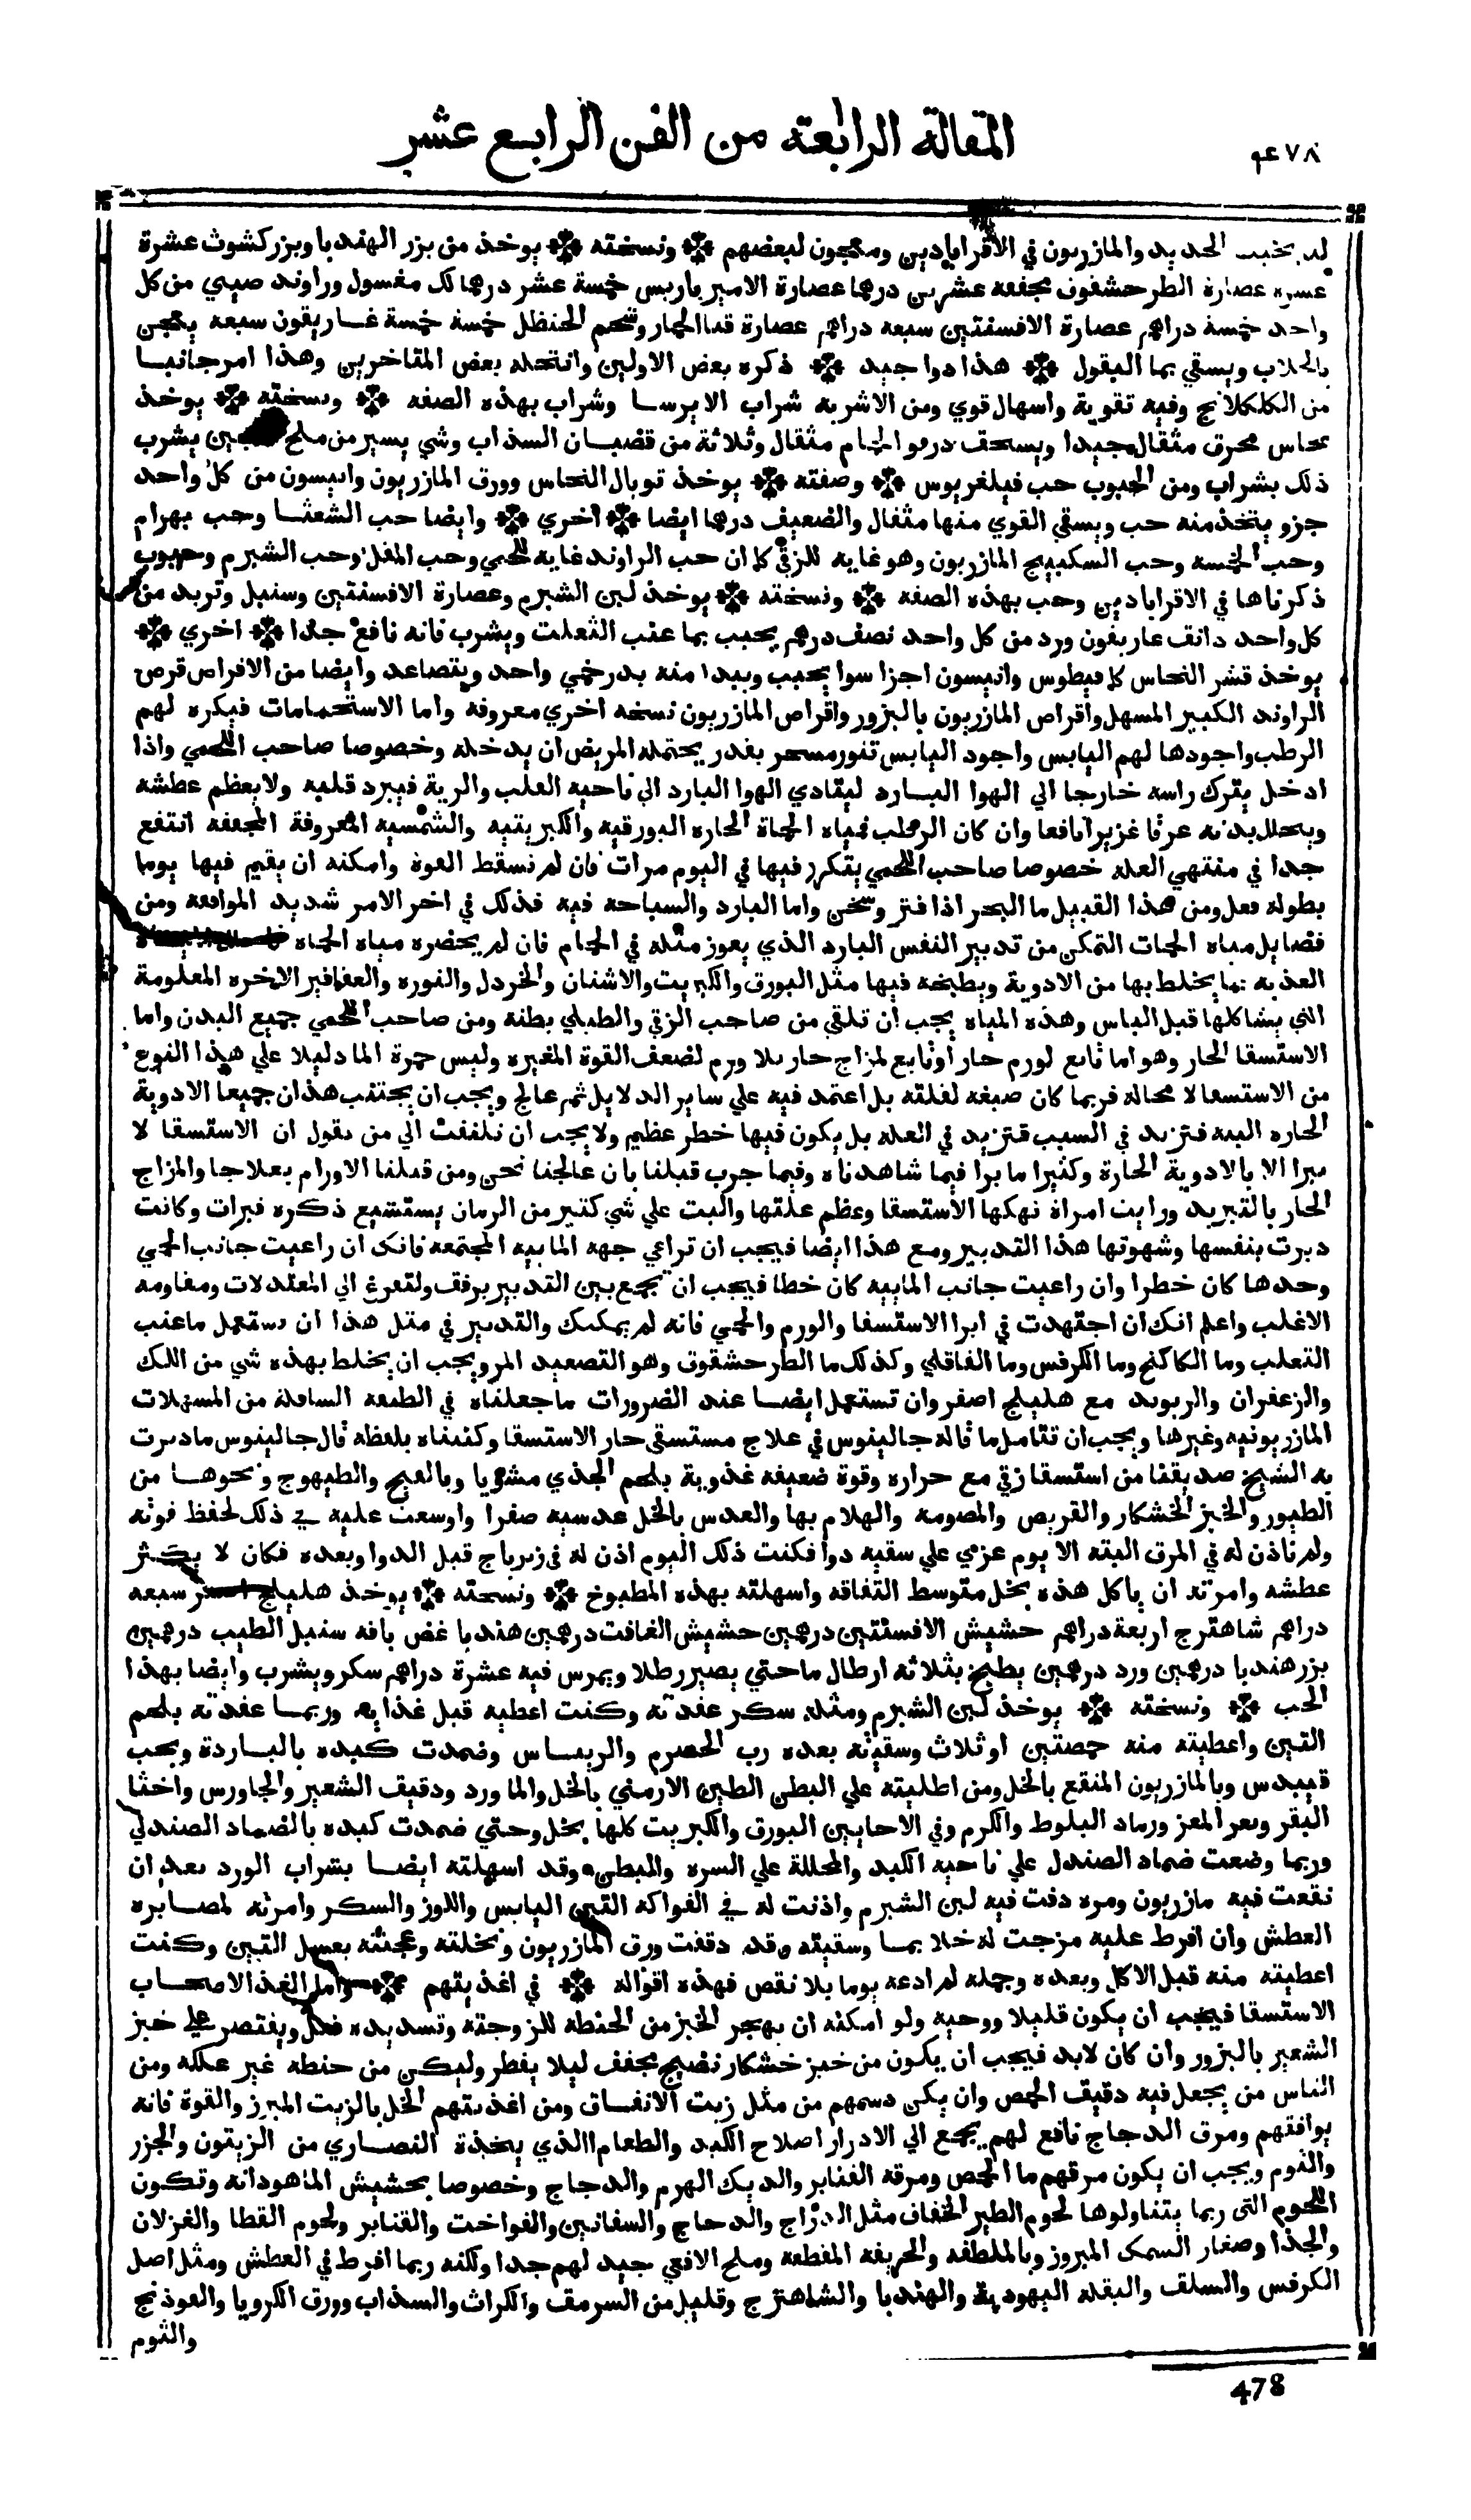 ٤٧٨
المقالة الرابعة من الفن الرابع عشر
الحديد والمازريون في الاقراباديين ومعجون لبعضهم ونسخته يوخذ من بزر الهندبا وبزر كشوث عشرة
عشرة عصارة الطرحشقون مجففه عشرين درهما عصارة الامير باريس خمسة عشر درهما لك مغسول وراوند صيني من كل
واحد خمسة دراهم عصارة الافسنتين سبعه دراهم عصارة قثا الحمار وشحم الحنظل خمسة خمسة غاريقون سبعه يعجن
بالجلاب ويسقي بما البقول هذا دوا جيد ذكره بعض الاولين وانتحله بعض المتاخرين وهذا امر جانبا
من الكلكلانج وفيه تقوية واسهال قوي ومن الاشربه شراب الايرسا وشراب بهذه الصفه ونسخته يوخذ
نحاس محرق مثقال جيدا ويسحق وثلاثة من قضبان السذاب وشي يسير من ملح العجين يشرب
ذلك بشراب ومن الحبوب حب فيلغريوس وصفته يوخذ توبال النحاس وورق المازريون وانيسون من كل واحد
جزو يتخذ منه حب ويسقي القوي منها مثقال والضعيف درهما ايضا اخري وايضا حب الشعثا وحب بهرام
وحب الخمسه وحب السكبينج المازريون وهو غايه للزقي كما ان حب الراوند غايه للحمي وحب المقل وحب الشبرم وحبوب
ذكرناها في الاقراباديين وحب بهذه الصفه ونسخته يوخذ لبن الشبرم وعصارة الافسنتين وسنبل وتربد من
كل واحد دانق غاريقون ورد من كل واحد نصف درهم يحبب بما عنب الثعلب ويشرب فانه نافع جدا اخري
يوخذ قشر النحاس كمافيطوس وانيسون اجزا سوا يحبب ويبدا منه بدرخمي واحد ويتصاعد وايضا من الاقراص قرص
الراوند الكبير المسهل واقراص المازريون بالبزور واقراص المازريون نسخه اخري معروفه واما الاستحمامات فيكره لهم
الرطب واجودها لهم اليابس واجود اليابس تنور مسجر بقدر يحتمله المريض ان يدخله وخصوصا صاحب اللحمي واذا
ادخل يترك راسه خارجا الي الهوا البارد ليتادي الهوا البارد الي ناحيه القلب والرية فيبرد قلبه ولا يعظم عطشه
ويتحلل بدنه عرقا غزيرا نافعا وان كان الرطب فمياه الحماة الحاره البورقيه والكبريتيه والشمسيه المعروفة المجففه انتفع
جدا في منتهي العله خصوصا صاحب اللحمي يتكرر فيها في اليوم مرات فان لم تسقط القوة وامكنه ان يقيم فيها يوما
بطوله فعل ومن هذا القبيل ما البحر اذا فتر وسخن واما البارد والسباحه فيه فذلك في اخر الامر شديد الموافقه ومن
فضايل مياه الحمات التمكن من تدبير النفس البارد الذي يعوز مثله في الحمام فان لم يحضره مياه الحماه
العذبه بما يخلط بها من الادوية ويطبخه فيها مثل البورق والكبريت والاشنان والخردل والنوره والعقاقير الاخره المعلومة
التي يشاكلها قبل الياس وهذه المياه يجب ان تلقي من صاحب الزقي والطبلي بطنه ومن صاحب اللحمي جميع البدن واما
الاستسقا الحار وهو اما تابع لورم حار او تابع لمزاج حار بلا ورم لضعف القوة المغيره وليس حمرة الما دليلا علي هذا النوع
من الاستسقا لا محاله فربما كان صبغه لقلته بل اعتمد فيه علي ساير الدلايل ثم عالج ويجب ان يجتنب هذان جميعا الادوية
الحاره البته فتزيد في السبب فتزيد في العله بل يكون فيها خطر عظيم ولا يجب ان تلتفت الي من يقول ان الاستسقا لا
يبرا الا بالادوية الحارة وكثيرا ما برا فيما شاهدناه وفيما جرب قبلنا بان عالجنا نحن ومن قبلنا الاورام بعلاجها والمزاج
الحار بالتبريد ورايت امراة نهكها الاستسقا وعظم علتها والبت علي شي كثير من الرمان يستشيع ذكره فبرات وكانت
دبرت بنفسها وشهوتها هذا التدبير ومع هذا ايضا فيجب ان تراعي جهه المائيه المجتمعه فانك ان راعيت جانب الحمي
وحدها كان خطرا وان راعيت جانب المائيه كان خطا فيجب ان يجمع بين التدبير برفق ولتفرغ الي المعتدلات ومقاومه
الاغلب واعلم انك ان اجتهدت في ابرا الاستسقا والورم والحمي فانه لم يمكنك والتدبير في مثل هذا ان تستعمل ما عنب
الثعلب وما الكاكنج وما الكرفس وما القاقلي وكذلك ما الطرحشقوق وهو التصعيد المر ويجب ان يخلط بهذه شي من اللك
والزعفران والريوند مع هليلج اصفر وان تستعمل ايضا عند الضرورات ما جعلناه في الطبقه السافلة من المسهلات
المازريونيه وغيرها ويجب ان تتامل ما قاله جالينوس في علاج مستسقي حار الاستسقا وكتبناه بلفظه قال جالينوس ما دبرت
به الشيخ صديقنا من استسقا زقي مع حراره وقوة ضعيفه غذوية بلحم الجدي مشويا وبالقبج والطيهوج ونحوها من
الطيور والخبز الخشكار والقريص والمصوصه والهلام بها والعدس بالخل عدسيه صفرا واوسعت عليه في ذلك لحفظ قوته
ولم ناذن له في المرق البته الا يوم عزمي علي سقيه دوا فكنت ذلك اليوم اذن له في زيرباج قبل الدوا وبعده فكان لا يكثر
عطشه وامرته ان ياكل هذه بخل متوسط الثقافه واسهلته بهذه المطبوخ ونسخته يوخذ هليلج اصفر سبعه
دراهم شاهترج اربعة دراهم حشيش الافسنتين درهمين حشيش الغافت درهمين هندبا غض باقه سنبل الطيب درهمين
بزر هندبا درهمين ورد درهمين يطبخ بثلاثه ارطال ما حتي يصير رطلا ويمرس فيه عشرة دراهم سكر ويشرب وايضا بهذا
الحب ونسخته يوخذ لبن الشبرم ومثله سكر عقدته وكنت اعطيه قبل غذايه وربما عقدته بلحم
التين واعطيته منه حمصتين او ثلاث وسقيته بعده رب الحصرم والريباس وضمدت كبده بالباردة وبحب
قنيبدس وبالمازريون المنقع بالخل ومن اطليته علي البطن الطين الارمني بالخل والما ورد ودقيق الشعير والجاورس واخثا
البقر وبعر المعز ورماد البلوط والكرم وفي الاحايين البورق والكبريت كلها بخل وحتي ضمدت كبده بالضماد الصندلي
وربما وضعت ضماد الصندل علي ناحيه الكبد والمحللة علي السره والبطن وقد اسهلته ايضا بشراب الورد بعد ان
نقعت فيه مازريون ومره دفت فيه لبن الشبرم واذنت له في الفواكه التين اليابس واللوز والسكر وامرته لمصابره
العطش وان افرط عليه مزجت له خلا بما وسقيته وقد دققت ورق المازريون ونخلته وعجنته بعسل التين وكنت
اعطيته منه قبل الاكل وبعده وجمله لم ادعه يوما بلا نقص فهذه اقواله في اغذيتهم واما الغذا لاصحاب
الاستسقا فيجب ان يكون قليلا ووجبه ولو امكنه ان يهجر الخبز من الحنطه للزوجته وتسديده فعل ويقتصر علي خبز
الشعير بالبزور وان كان لابد فيجب ان يكون من خبز خشكار نضيج مجفف ليلا يفطر وليكن من حنطه غير علكه ومن
الناس من يجعل فيه دقيق الحمص وان يكن دسمهم من مثل زيت الانفاق ومن اغذيتهم الخل بالزيت المبزر والقوة فانه
يوافقهم ومرق الدجاج نافع لهم يجمع الي الادرار اصلاح الكبد والطعام االذي يتخذة النصاري من الزيتون والجزر
والثوم ويجب ان يكون مرقهم ما الحمص ومرقه القنابر والديك الهرم والدجاج وخصوصا بحشيش الماهودانه وتكون
اللحوم التي ربما يتناولوها لحوم الطير الخفاف مثل الدراج والدجاج والسفانين والفواخت والقنابر ولحوم القطا والغزلان
والجدا وصغار السمك المبروز وبالملطفه والحريفه المقطعه وملح الافعي جيد لهم جدا ولكنه ربما افرط في العطش ومثل اصل
الكرفس والسلق والبقله اليهودية والهندبا والشاهترج وقليل من السرمق والكراث والسذاب وورق الكرويا والفوذنج
والثوم
478